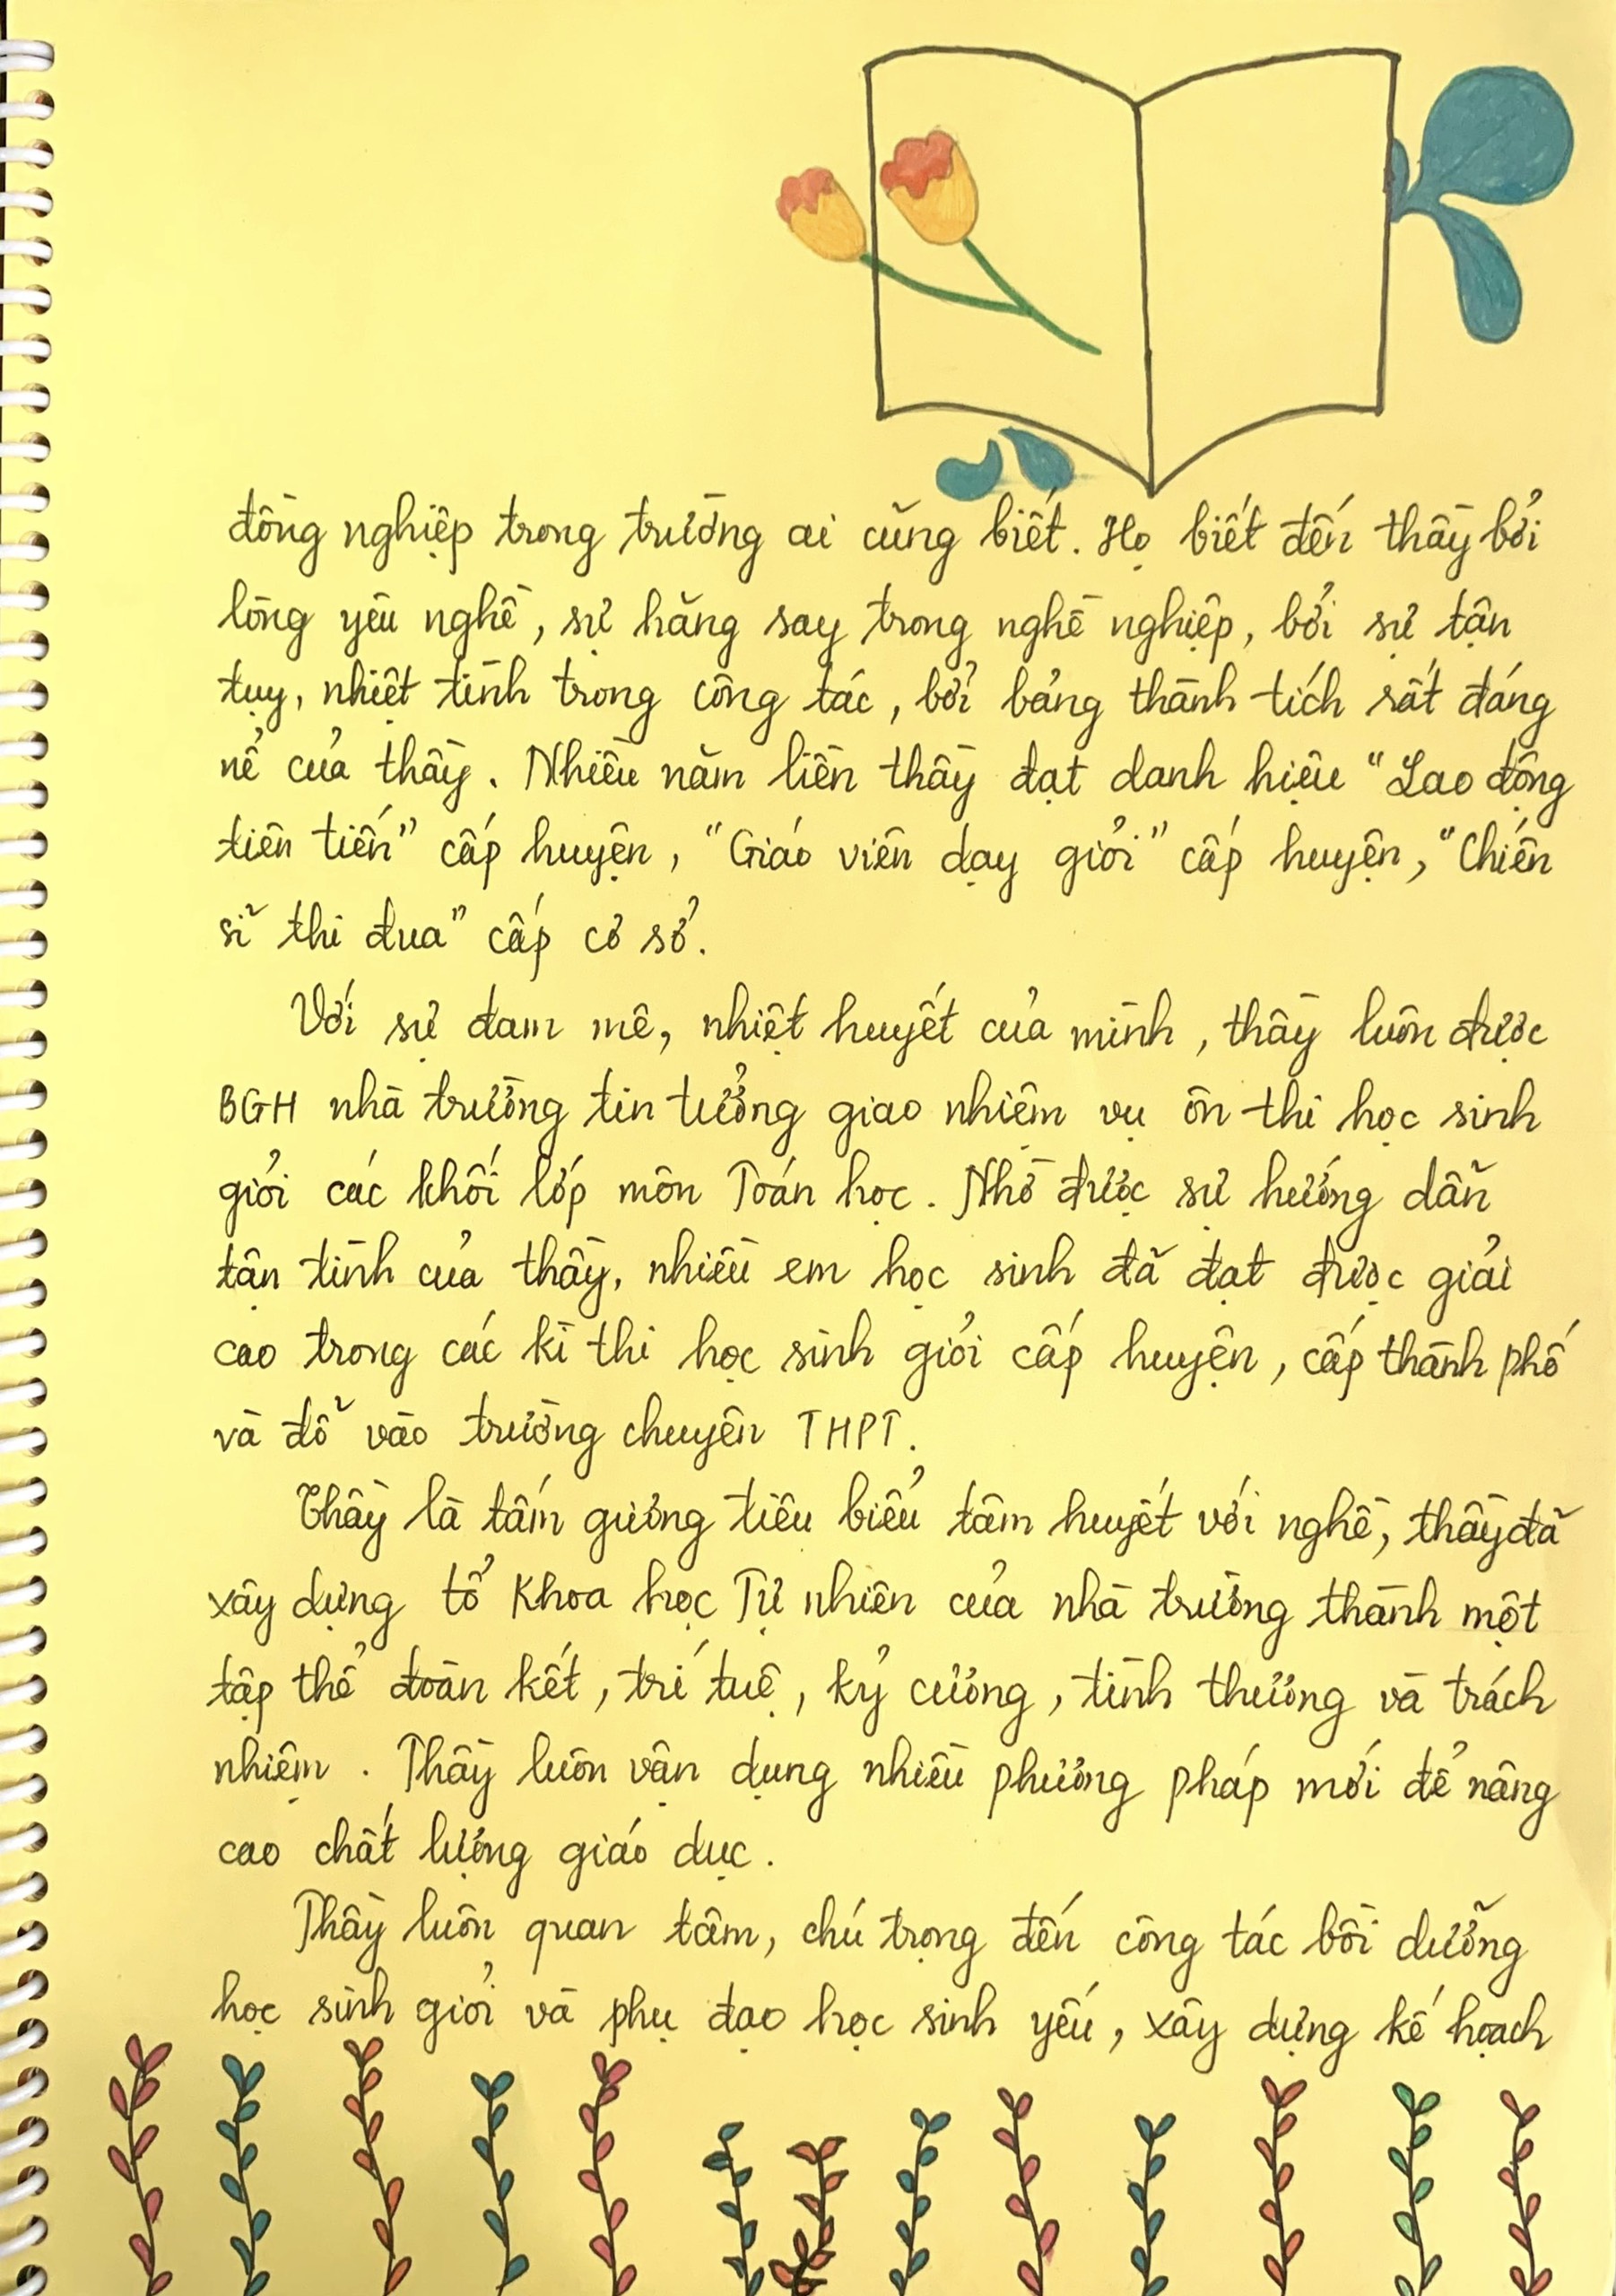 đồng nghiệp trong trường ai cũng biết. Họ biết đến thầy bởi
lòng yêu nghề, sự hăng say trong nghề nghiệp, bởi sự tận
tụy, nhiệt tình trong công tác, bởi bảng thành tích rất đáng
nể của thầy. Nhiều năm liền thầy đạt danh hiệu "Lao động
tiên tiến" cấp huyện, "Giáo viên dạy giỏi" cấp huyện, "Chiến
sĩ thi đua" cấp cơ sở.
Với sự đam mê, nhiệt huyết của mình, thầy luôn được
BGH nhà trường tin tưởng giao nhiệm vụ ôn thi học sinh
giỏi các khối lớp môn Toán học. Nhờ được sự hướng dẫn
tận tình của thầy, nhiều em học sinh đã đạt được giải
cao trong các kì thi học sinh giỏi cấp huyện, cấp thành phố
và đỗ vào trường chuyên THPT.
Thầy là tấm gương tiêu biểu tâm huyết với nghề, thầy đã
xây dựng tổ Khoa học Tự nhiên của nhà trường thành một
tập thể đoàn kết, trí tuệ, kỷ cương, tình thương và trách
nhiệm. Thầy luôn vận dụng nhiều phương pháp mới để nâng
cao chất lượng giáo dục.
Thầy luôn quan tâm, chú trọng đến công tác bồi dưỡng
học sinh giỏi và phụ đạo học sinh yếu, xây dựng kế hoạch